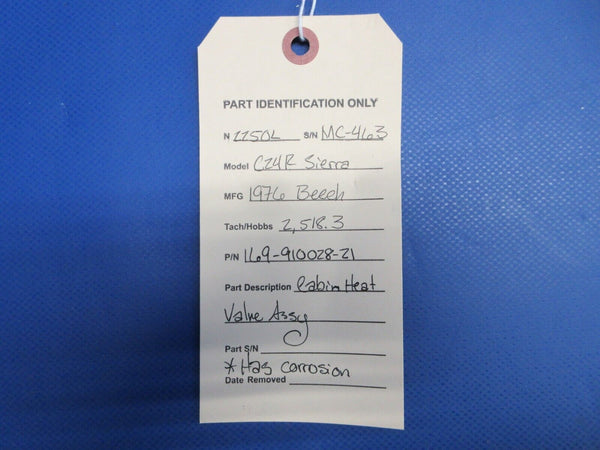 PART IDENTIFICATION ONLY
N 2250L S/N MC-463
Model C24R Sierra
MFG 1976 Beech
Tach/Hobbs 2,518.3
P/N 169-910028-21
Part Description Cabin Heat
Valve Assy
Part S/N
* Has corrosion
Date Removed